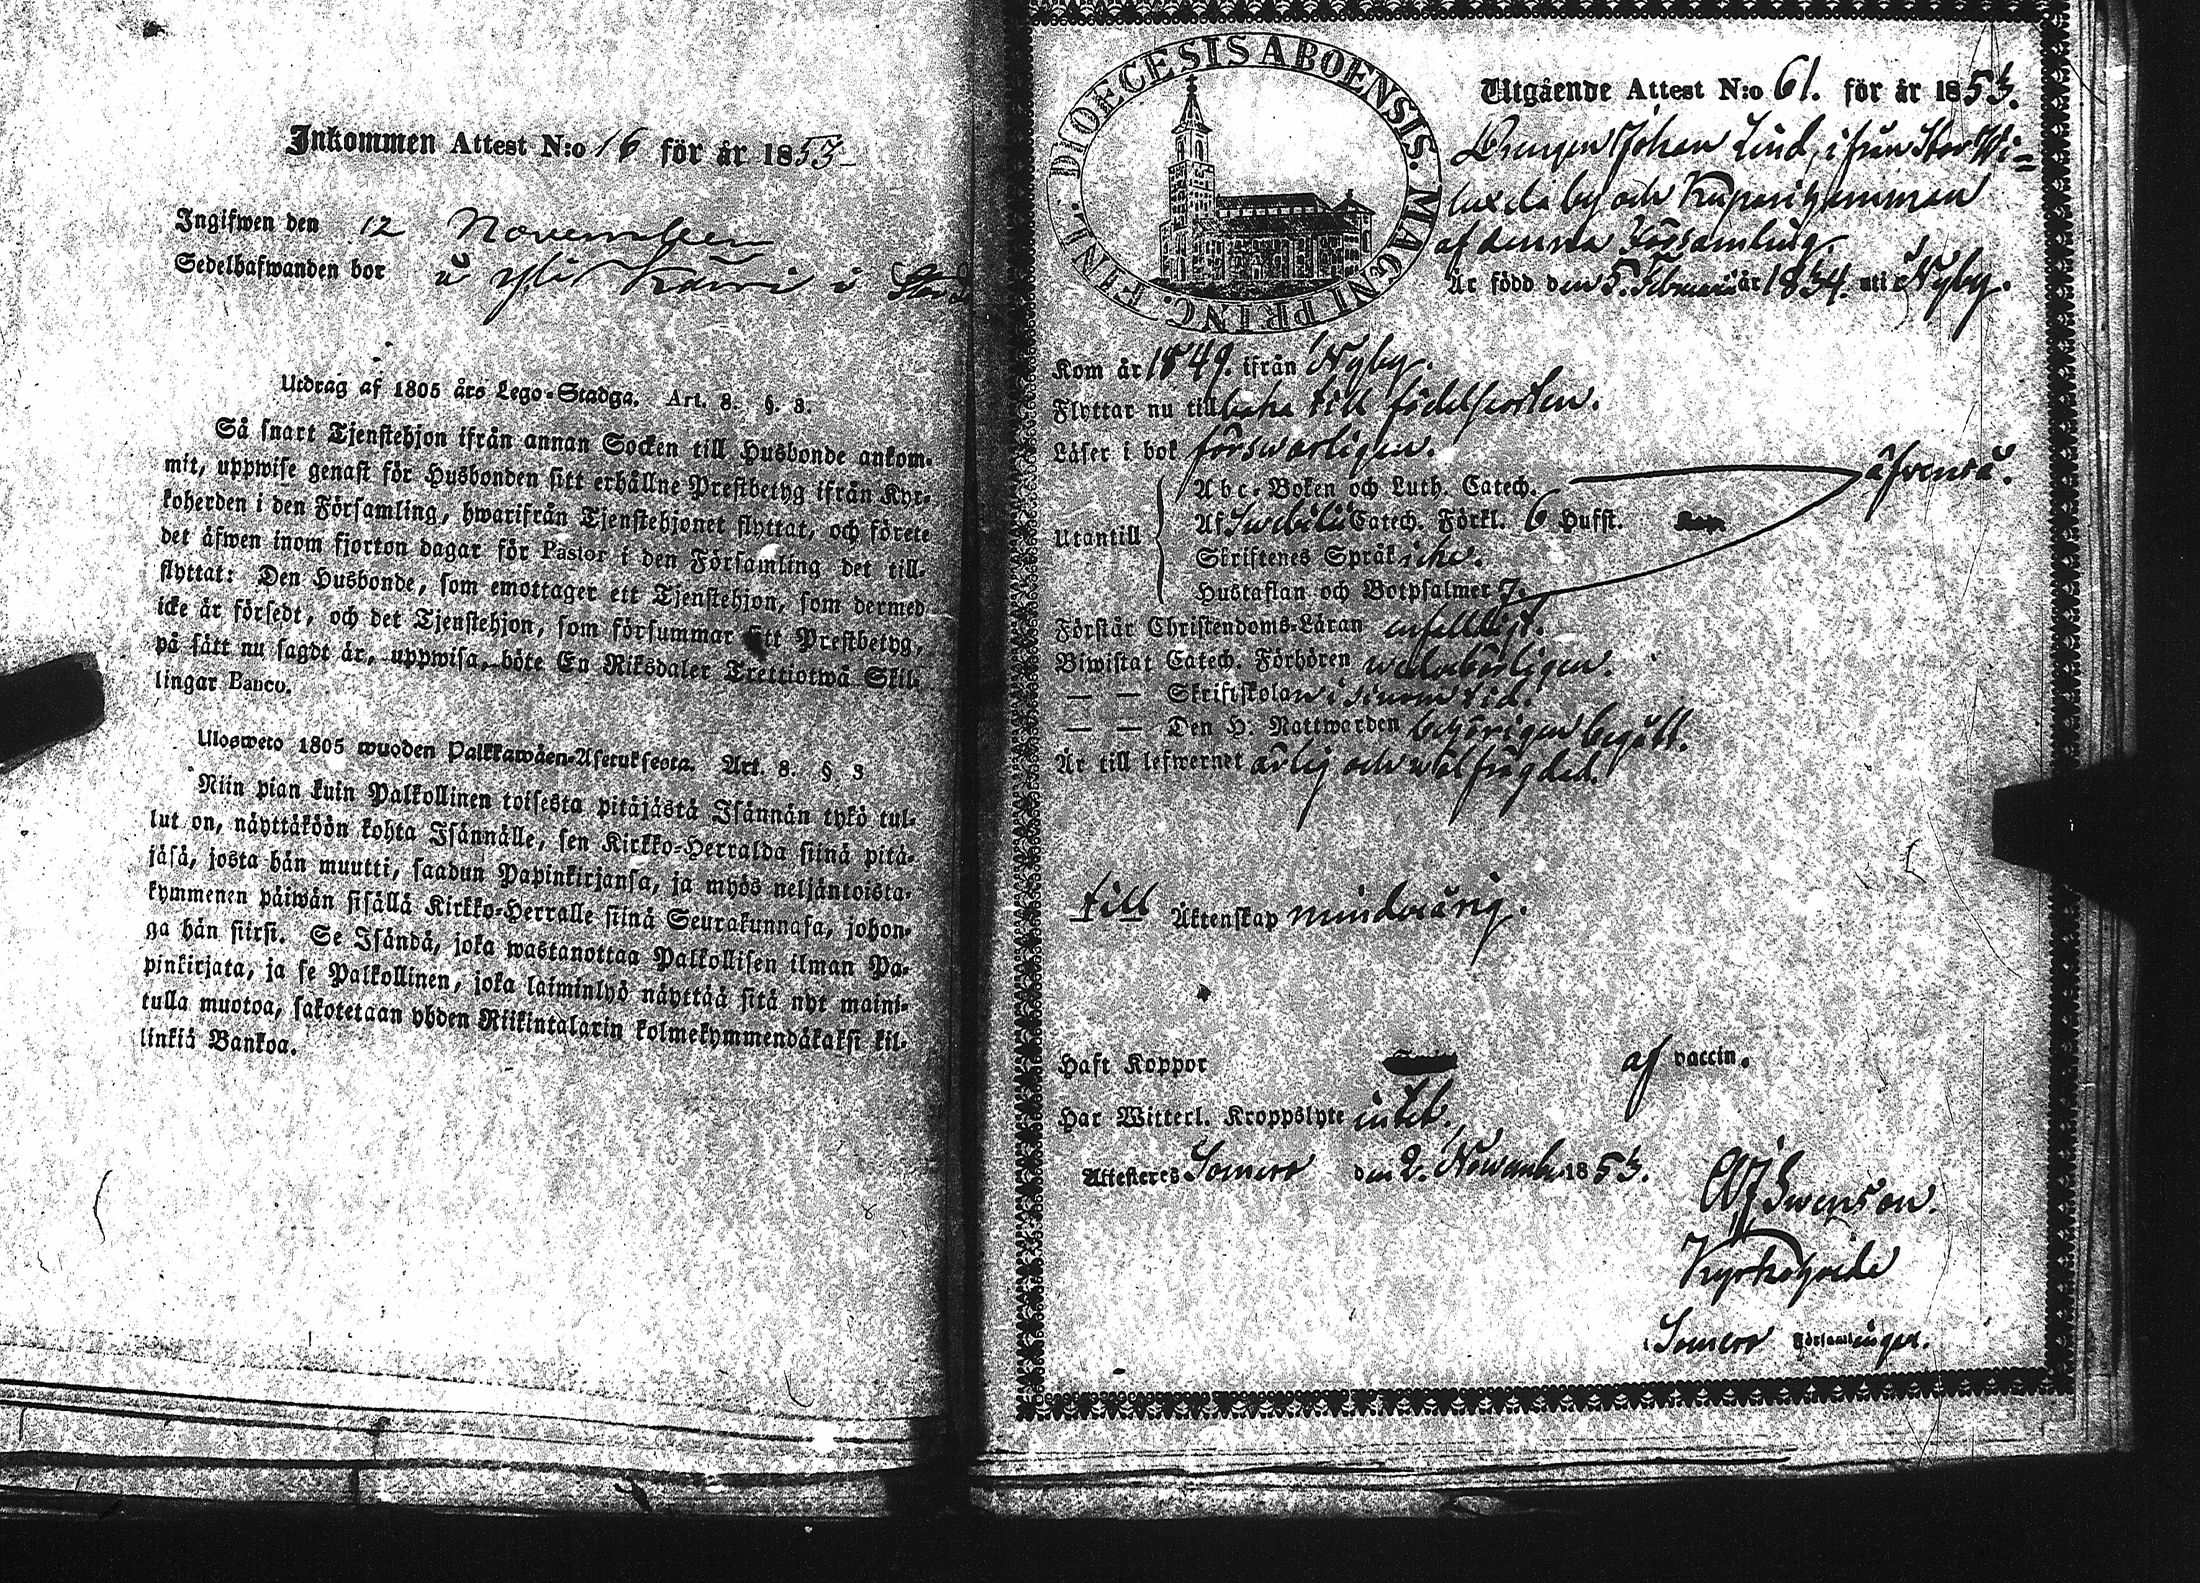 Inkommen Attest N:o 16 för år 1853
Ingifwen den 12 November
Sedelhafwanden bor å Yli Kauri i
Utdrag af 1805 års Lego-Stadga. Art. 8. §. 3.
Så snart Tjenstehjon ifrån annan Socken till Husbonde ankom-
mit, uppwise genast för Husbonden sitt erhållne Prestbetyg ifrån Kyr-
koherden i den Församling, hwarifrån Tjenstehjonet flyttat, och förete
det äfwen inom fjorton dagar för Pastor i den Församling det till-
flyttat: Den Husbonde, som emottager ett Tjenstehjon, som dermed
icke är försedt, och det Tjenstehjon, som försummar sitt Prestbetyg,
på sätt nu sagdt är, uppwisa, böte En Riksdaler Trettiotwå Skil-
lingar Banco.
Ulosweto 1805 wuoden Palkkawäen-Asetuksesta. Art. 8. § 3
Niin pian kuin Palkollinen toisesta pitäjästä Isännän tykö tul-
lut on, näyttäköön kohta Isännälle, sen Kirkko-Herralda siinä pitä-
jäsä, josta hän muutti, saadun Papinkirjansa, ja myös neljäntoista-
kymmenen päiwän sisällä Kirkko-Herralle siinä Seurakunnasa, johon-
ga hän siirsi. Se Isändä, joka wastanottaa Palkollisen ilman Pa-
pinkirjata, ja se Palkollinen, joka laiminlyö näyttää sitä nyt maini-
tulla muotoa, sakotetaan yhden Riikintalarin kolmekymmendäkaksi kil-
linkiä Bankoa.
FINL. DIOECESIS ABOENSIS. MAGNI PRINC.
Utgående Attest N:o 61. för år 1853.
Drengen Johan Lind, ifrån Stor Wi-
laxda by och
af denna Församling.
Är född den 5. Februarii år 1834. uti Nyby.
Kom år 1849. ifrån Nyby.
Flyttar nu tillbaka till födelseorten.
Läser i bok förswarligen.
Utantill
Abc-Boken och Luth. Catech.
Af Swebilii Catech. Förkl. 6 Hufst.
Skriftenes Språk icke.
Hustaflan och Botpsalmer 7.
äfwenså.
Förstår Christendoms-Läran enfalldigt.
Biwistat Catech. Förhören wederbörligen.
— — Skriftskolan i sinom tid.
— — Den H: Nattwarden behörigen begått.
Är till lefwernet ärlig och wälfrägdad.
till Äktenskap minderårig.
Haft Koppor af vaccin.
Har Witterl. Kroppslyte intet.
Attesteras Somero den 2. Novemb. 1853.
Swenson.
Kyrkoherde
i Somero Församlingen.